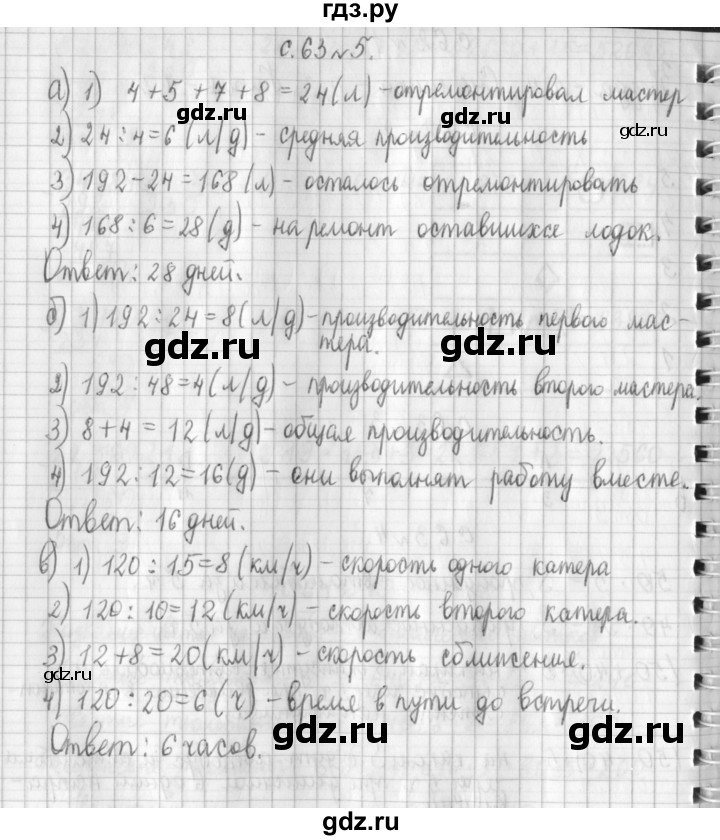 гдз.ру
с.63№5.
а) 1) 4+5+7+8=24(л) - отремонтировал мастер
gdz.ru gdz.ru
2) 24:4=6 (л/д) - средняя производительность
gdz.ru
3) 192-24=168(л) - осталось отремонтировать
4) 168:6=28(д) - на ремонт оставшихся лодок.
gdz.ru gdz.ru
Ответ: 28 дней.
б) 1) 192:24=8(л/д) - производительность первого мас-
тера.
gdz.ru gdz.ru
2) 192:48=4(л/д) - производительность второго мастера.
3) 8+4=12(л/д) - общая производительность.
gdz.ru gdz.ru
4) 192:12=16(д) - они выполнят работу вместе.
Ответ: 16 дней.
в) 1) 120:15=8(км/ч) - скорость одного катера
gdz.ru gdz.ru
2) 120:10=12(км/ч) - скорость второго катера.
3) 12+8=20(км/ч) - скорость сближения.
gdz.ru
4) 120:20=6(ч) - время в пути до встречи.
gdz.ru gdz.ru
Ответ: 6 часов.
gdz.ru